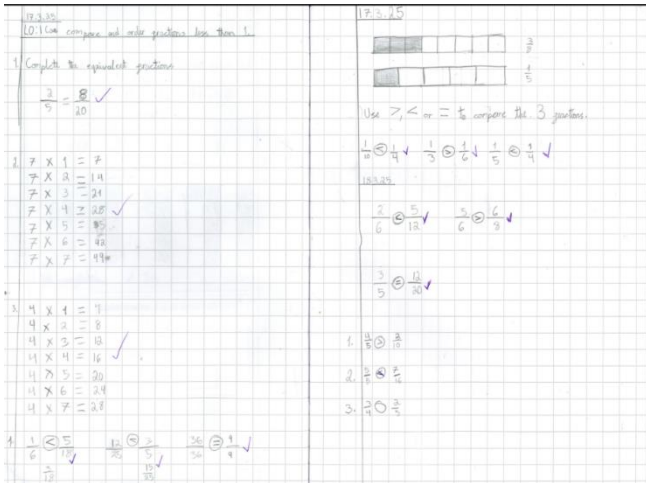 17.3.25
LO: I can compare and order fractions less than 1.
1. Complete the equivalent fractions
2/5 = 8/20
2. 7 x 1 = 7
7 x 2 = 14
7 x 3 = 21
7 x 4 = 28
7 x 5 = 35
7 x 6 = 42
7 x 7 = 49
3. 4 x 1 = 4
4 x 2 = 8
4 x 3 = 12
4 x 4 = 16
4 x 5 = 20
4 x 6 = 24
4 x 7 = 28
4. 1/6 < 5/18 12/25 < 3/5 36/36 = 9/9
3/18 15/25
17.3.25
3/8
1/5
Use >, < or = to compare the 3 questions.
1/10 < 1/4 1/3 > 1/6 1/5 < 1/4
18.3.25
2/6 < 5/12 5/6 > 6/8
3/5 = 12/20
1. 4/5 > 3/10
2. 7/16
3. 3/4 2/3